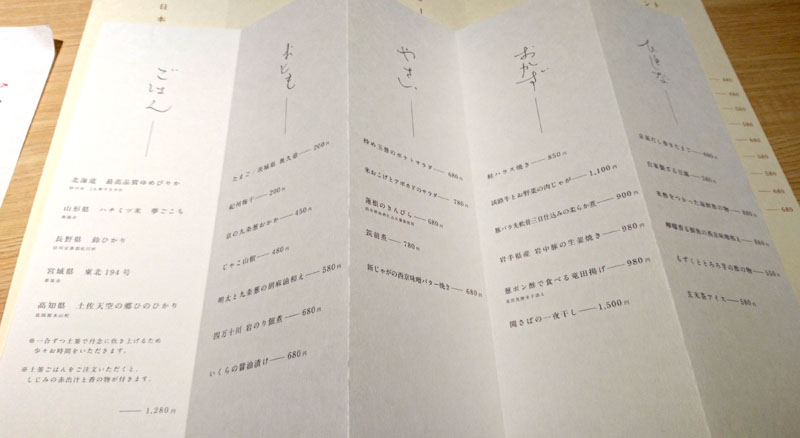 ごはん
北海道　最高品質ゆめぴりか
山形県　ハチミツ米　夢ごこち
長野県　鈴ひかり
宮城県　東北194号
高知県　土佐天空の郷ひのひかり
※一合ずつ土釜で丹念に炊き上げるため
少々お時間をいただきます。
※土釜ごはんをご注文いただくと、
しじみの赤出汁と香の物が付きます。
1,280円
おとも
たまご 茨城県 奥久慈 200円
紀州梅干 200円
京の九条葱おかか 450円
じゃこ山椒 480円
明太と九条葱の胡麻油和え 580円
四万十川 岩のり佃煮 680円
いくらの醤油漬け 680円
やさい
炒め玉葱のポテトサラダ 680円
米おこげとアボカドのサラダ 780円
蓮根のきんぴら 680円
筑前煮 780円
新じゃがの西京味噌バター焼き 680円
おかず
鮭ハラス焼き 850円
淡路牛とお野菜の肉じゃが 1,100円
豚バラ先軟骨三日仕込みの柔らか煮 900円
岩手県産 岩中豚の生姜焼き 980円
葱ポン酢で食べる竜田揚げ 980円
関さばの一夜干し 1,500円
もずくととろろ芋の酢の物 550円
玄米茶アイス 580円